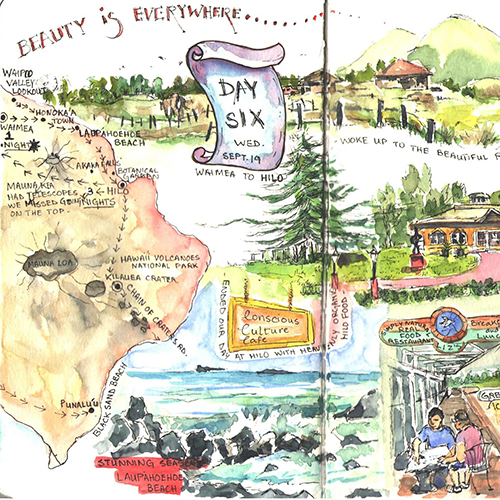 BEAUTY IS EVERYWHERE.......
DAY
SIX
WED.
SEPT. 19
WAIMEA TO HILO
WAIPIO
VALLEY
LOOKOUT
HONOKA'A
TOWN
WAIMEA
1
NIGHT
LAUPAHOEHOE
BEACH
AKAKA FALLS
BOTANICAL
GARDEN
MAUNA KEA
HAD TELESCOPES
ON THE TOP.
3
HILO
NIGHTS
MAUNA LOA
HAWAII VOLCANOES
NATIONAL PARK
KILAUEA CRATER
CHAIN OF CRATERS RD.
PUNALU'U
BLACK SAND BEACH
WOKE UP TO THE BEAUTIFUL
Conscious
Culture
Cafe
ENDED OUR DAY AT HILO WITH
ORGANIC
HILO FOOD
STUNNING
LAUPAHOEHOE
BEACH
REAL
FOOD
RESTAURANT